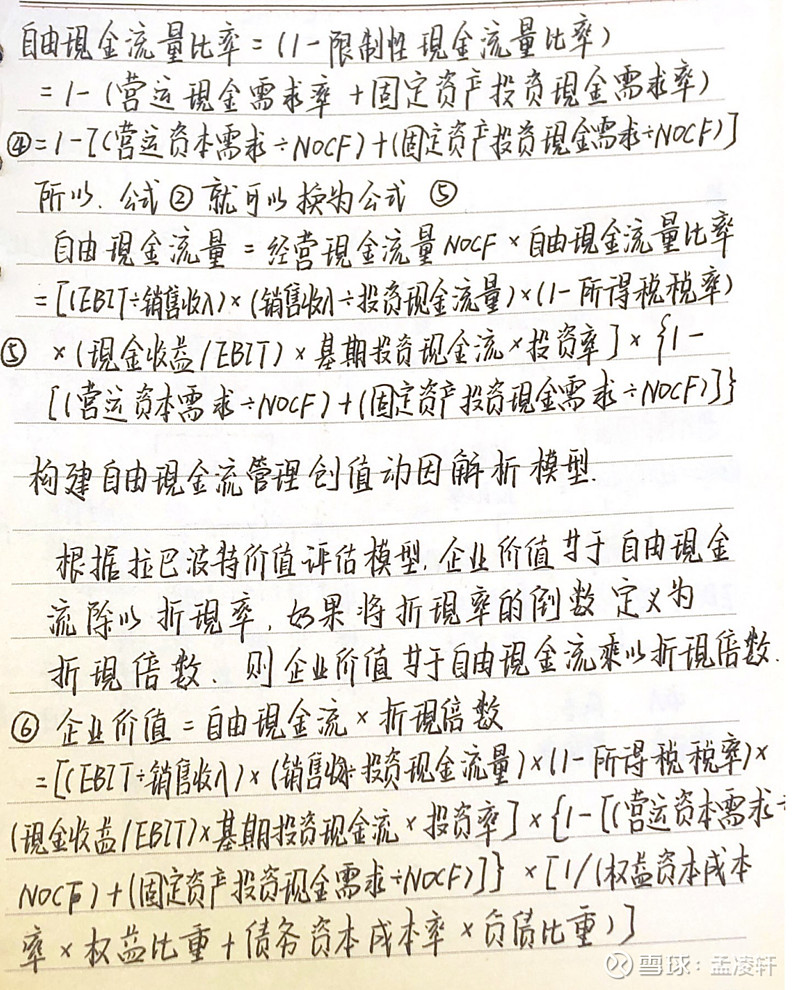 自由现金流量比率=(1-限制性现金流量比率)
=1-(营运现金需求率+固定资产投资现金需求率)
④=1-[(营运资本需求÷NOCF)+(固定资产投资现金需求÷NOCF)]
所以.公式②就可以换为公式⑤
自由现金流量=经营现金流量NOCF×自由现金流量比率
=[(EBIT÷销售收入)×(销售收入÷投资现金流量)×(1-所得税税率)
⑤ ×(现金收益/EBIT)×基期投资现金流×投资率]×{1-
[(营运资本需求÷NOCF)+(固定资产投资现金需求÷NOCF)]}
构建自由现金流管理创值动因解析模型.
根据拉巴波特价值评估模型,企业价值等于自由现金
流除以折现率,如果将折现率的倒数定义为
折现倍数、则企业价值等于自由现金流乘以折现倍数.
⑥企业价值=自由现金流×折现倍数
=[(EBIT÷销售收入)×(销售收÷投资现金流量)×(1-所得税税率)×
(现金收益/EBIT)×基期投资现金流×投资率]×{1-[(营运资本需求÷
NOCF)+(固定资产投资现金需求÷NOCF)]}×[1/(权益资本成本
率×权益比重+债务资本成本率×负债比重)]
雪球:孟凌轩